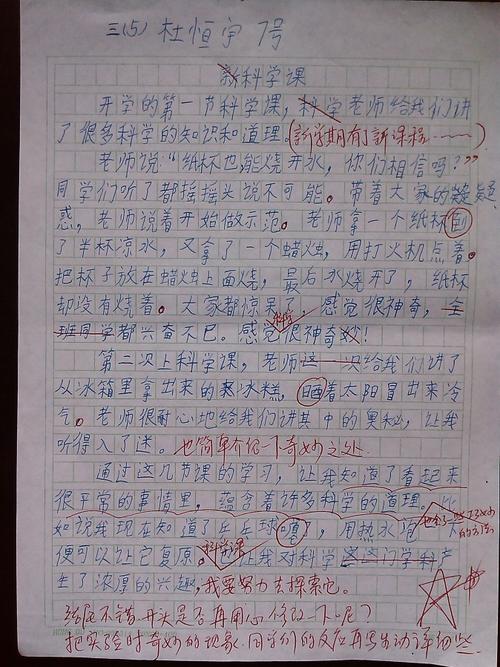 三(5) 杜恒宇 7号
科学课
开学的第一节科学课,科学老师给我们讲
了很多科学的知识和道理。(新学期有了新课程……)
老师说:“纸杯也能烧开水,你们相信吗?”
同学们听了都摇摇头说不可能。带着大家的疑
惑,老师说着开始做示范。老师拿一个纸杯倒
了半杯凉水,又拿了一个蜡烛,用打火机点着。
把杯子放在蜡烛上面烧,最后水烧开了,纸杯
却没有烧着。大家都惊呆了,感觉很神奇,全
班同学都兴奋不已。感觉科学很神奇妙!
第二次上科学课,老师这一次给我们讲了
从冰箱里拿出来的冰糕,晒着太阳冒出来冷
气。老师很耐心地给我们讲其中的奥秘,让我
听得入了迷。也简单介绍一下奇妙之处.
通过这几节课的学习,让我知道了看起来
很平常的事情里,蕴含着许多科学的道理。比
如说我现在知道了乒乓球嘎了,用热水泡
便可以让它复原。科学课让我对科学这门学科产
生了浓厚的兴趣,我要努力去探索它。
结尾不错.开头是否再用心修改一下呢?
把实验时奇妙的现象.同学们的反应再写生动详细些.